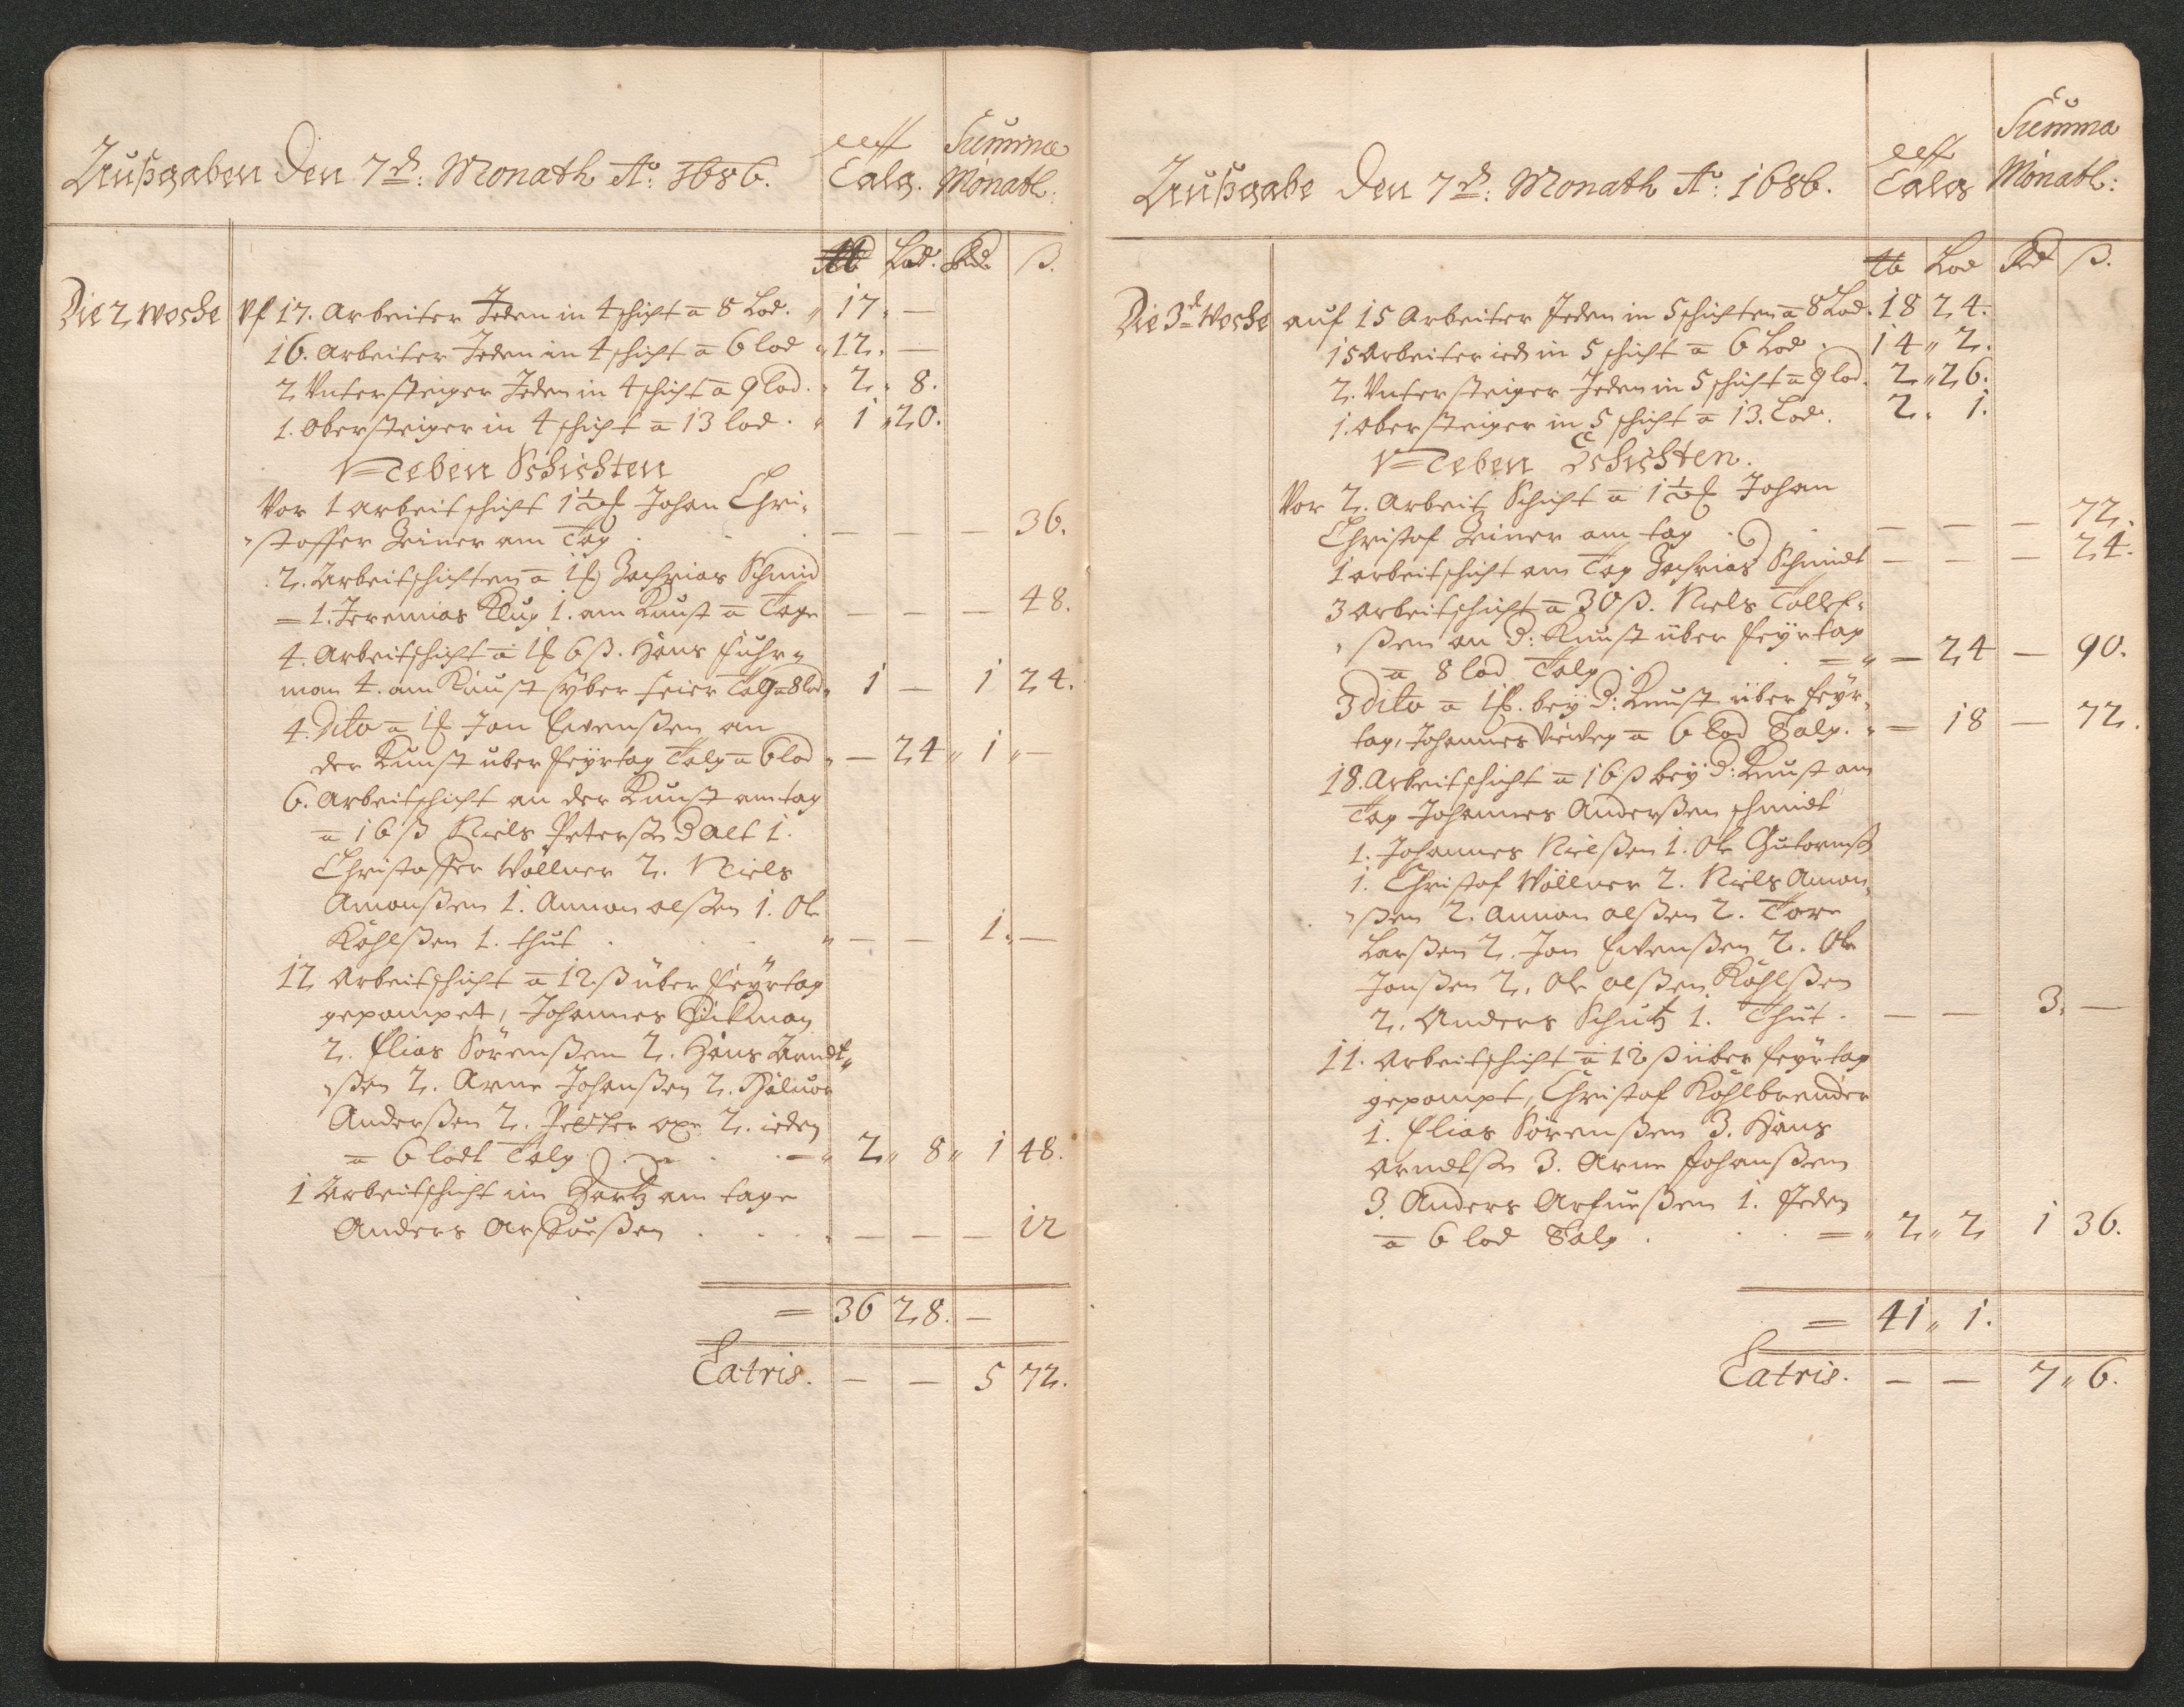 Außgaben Den 7d: Monath Ao: 1686.
eff Talg. Summa Monatl:
℔ Lod. Rd. ß.
Die 2 Woche Vf 17. Arbeiter Jeden in 4 schicht a 8 Lod. 17. —
16. Arbeiter Jeden in 4 schicht a 6 lod 12. —
2 Untersteiger Jeden in 4 schicht a 9 lod. 2. 8.
1. Obersteiger in 4 schicht a 13 lod. 1 20.
Neben Schichten
Vor 1 Arbeit schicht 1½ Johan Chri-
stoffer Zeiner am Tag — — — 36.
2. Arbeitschichten a Zachrias Schmid
1. Jeremias Klug 1. am Kunst a Tage — — — 48.
4. Arbeitschicht a 6 ß. Hans Fuhr-
man 4. am Kunst über feier Tag a 8 lod 1 — 1 24.
4. Dito a Jon Evenßen an
der Kunst uber feyrtag Talg a 6 lod — 24 1 —
6. Arbeitschicht an der Kunst am tag
a 16 ß Niels Peterß Dalt 1.
Christoffer Wöllner 2. Niels
Amonßen 1. Ammon olßen 1. Ole
Kohlßen 1. thut — — 1. —
12 Arbeitschicht a 12 ß über feyrtag
gepompet, Johannes Dikman
2. Elias Sörenßen 2. Hans Arndt-
ßen 2. Arne Johanßen 2. Halvor
Anderßen 2. Petter oxe 2. ieden
a 6 lodt Talg 2 8 1 48.
1 Arbeitschicht im Hartz am tage
Anders — — — 12
= 36 28. —
Latris. — — 5 72.
Außgabe Den 7d: Monath Ao: 1686.
eff Talg Summa Monatl:
℔ Lod Rd ß.
Die 3d Woche auf 15 Arbeiter Jeden in 5 schichten a 8 Lod. 18 24.
15 Arbeiter ied in 5 schicht a 6 Lod. 14 2.
2. Untersteiger Jeden in 5 schicht a 9 lod. 2 26.
1. Obersteiger in 5 schicht a 13. Lod. 2. 1.
Neben Schichten.
Vor 2. Arbeit Schicht a 1½ Johan
Christof Zeiner am tag — — — 72.
1 arbeitschicht am Tag Zachrias Schmidt — — — 24.
3 Arbeitschicht a 30 ß. Niels Tollef-
ßen an d: Kunst über feyrtag
a 8 lod Talg — 24 — 90.
3 dito a bey d: Kunst über feyr-
tag, Johannes a 6 Lod Talg. = 18 — 72.
18. Arbeitschicht a 16 ß bey d: Kunst am
Tag Johannes Anderßen schmidt
1. Johannes Nielßen 1. Ole Gutormß
1. Christof Wöllner 2. Niels Amon-
ßen 2. Ammon olßen 2. Tore
Larßen 2. Jon Evenßen 2. Ole
Jonßen 2. Ole olßen Kohlßen
2. Anders Schutz 1. Thut. — — 3. —
11. Arbeitschicht a 12 ß über feyrtag
gepompt, Christof Kohlbrender
1. Elias Sörenßen 3. Hans
Arndtß 3. Arne Johanßen
3. Anders 1. Jeden
a 6 lod Talg 2 2 1 36.
= 41 1.
Latris. — — 7 6.